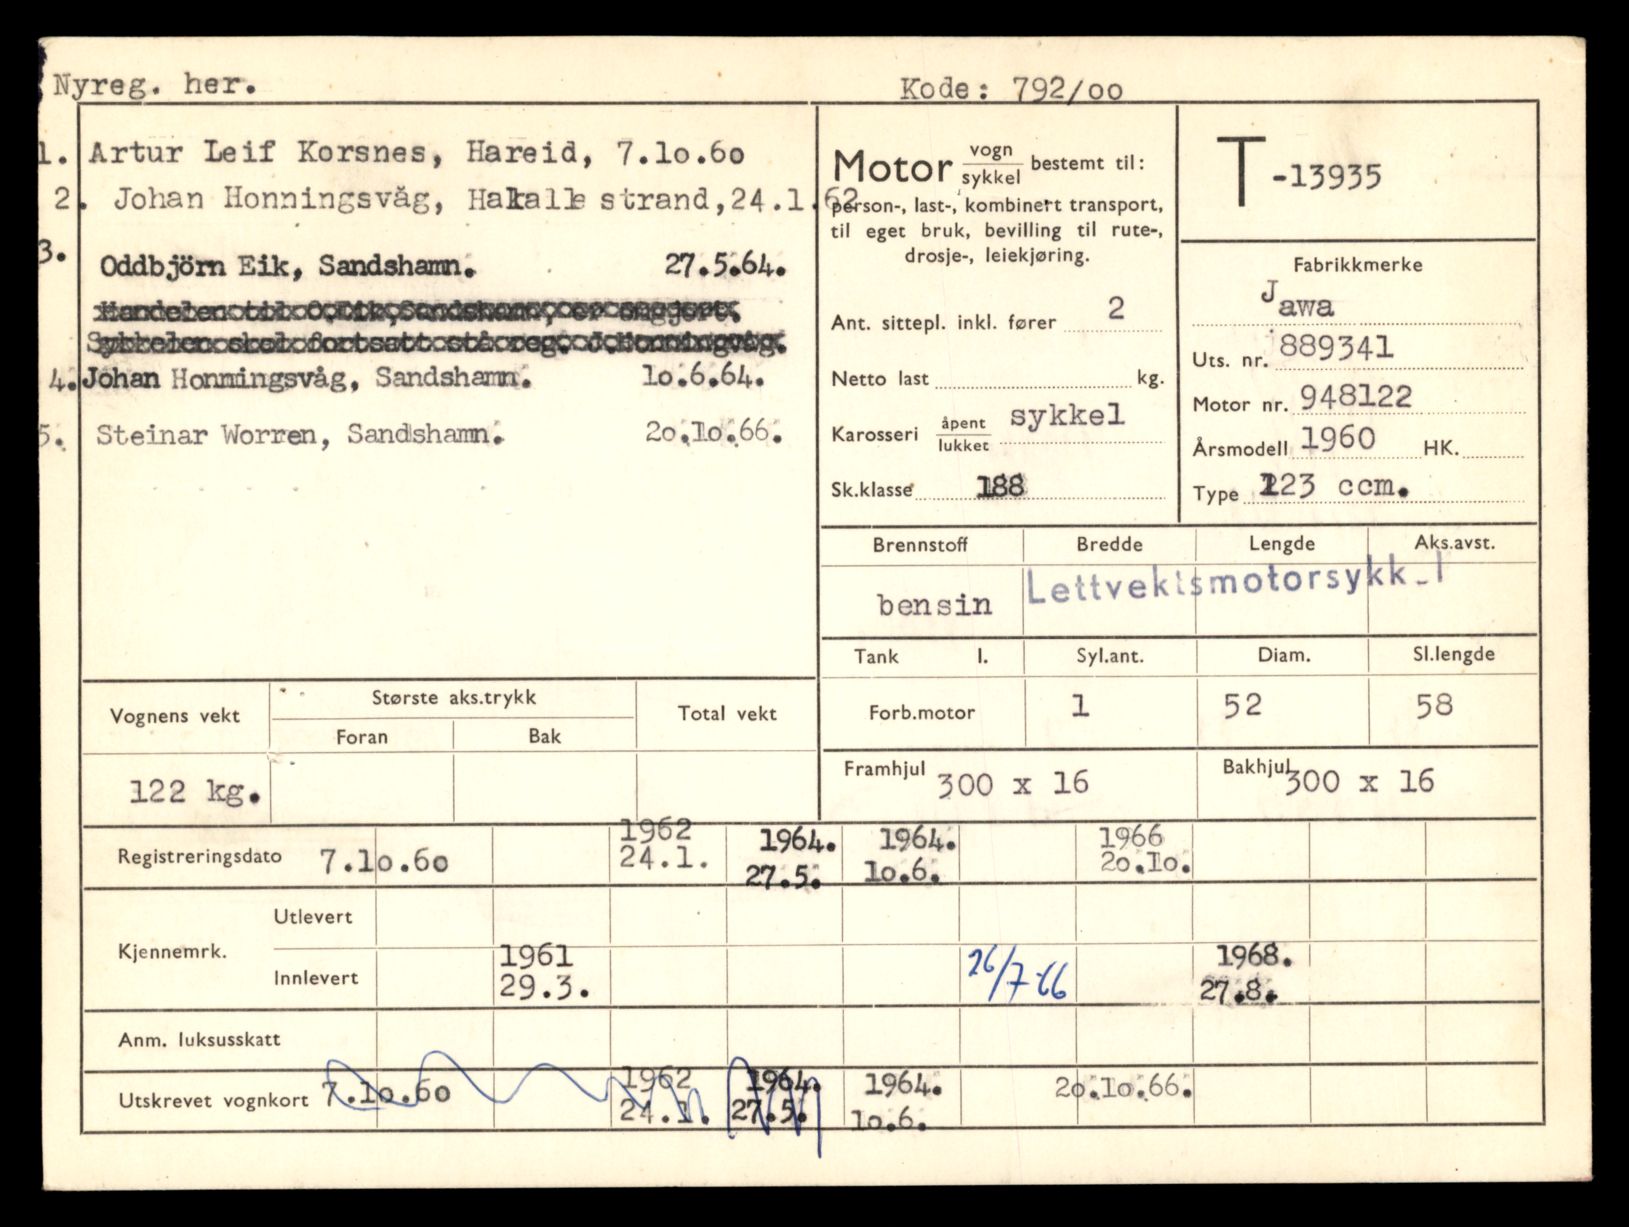 Nyreg. her.
Kode: 792/oo
1. Artur Leif Korsnes, Hareid, 7.1o.6o
2. Johan Honningsvåg, Hakallestrand, 24.1.62
3. Oddbjörn Eik, Sandshamn. 27.5.64.
Handelen til O.Eik, Sandshamn, er omgjort.
Sykkelen skal fortsatt stå reg. J.Honningsvåg.
4. Johan Honningsvåg, Sandshamn. 1o.6.64.
5. Steinar Worren, Sandshamn. 2o.1o.66.
Motor vogn/sykkel bestemt til:
person-, last-, kombinert transport,
til eget bruk, bevilling til rute-,
drosje-, leiekjøring.
Ant. sittepl. inkl. fører 2
Netto last kg.
Karosseri åpent/lukket sykkel
Sk.klasse 188
T-13935
Fabrikkmerke
Jawa
Uts. nr. 889341
Motor nr. 948122
Årsmodell 1960 HK.
Type 123 ccm.
Brennstoff Bredde Lengde Aks.avst.
bensin Lettvektsmotorsykk_l
Tank l. Syl.ant. Diam. Sl.lengde
Forb.motor 1 52 58
Framhjul 300 x 16 Bakhjul 300 x 16
Vognens vekt Største aks.trykk Total vekt
Foran Bak
122 kg.
Registreringsdato 7.1o.6o 1962 24.1. 1964. 27.5. 1964. 1o.6. 1966 2o.1o.
Kjennemrk. Utlevert
Innlevert 1961 29.3. 26/7-66 1968. 27.8.
Anm. luksusskatt
Utskrevet vognkort 7.1o.6o 1962 24.1. 1964. 27.5. 1964. 1o.6. 2o.1o.66.